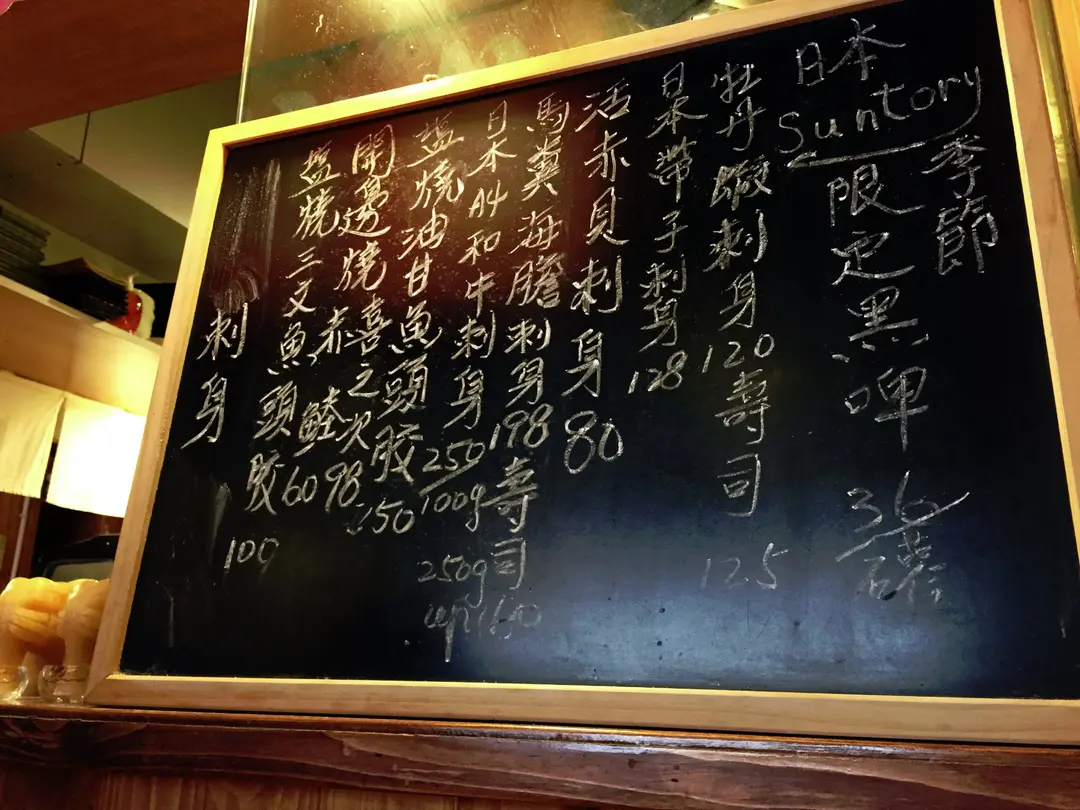 日本
Suntory
季節
限定黑啤 36/罐
牡丹蝦刺身120 壽司 12.5
日本帶子刺身 128
活赤貝刺身 80
馬糞海膽刺身 198 壽司 160
日本A4和牛刺身 250/100g 250g up
塩燒油甘魚頭胶 150
開邊燒喜之次 98
赤鯥
塩燒三文魚頭胶 60
100
刺身